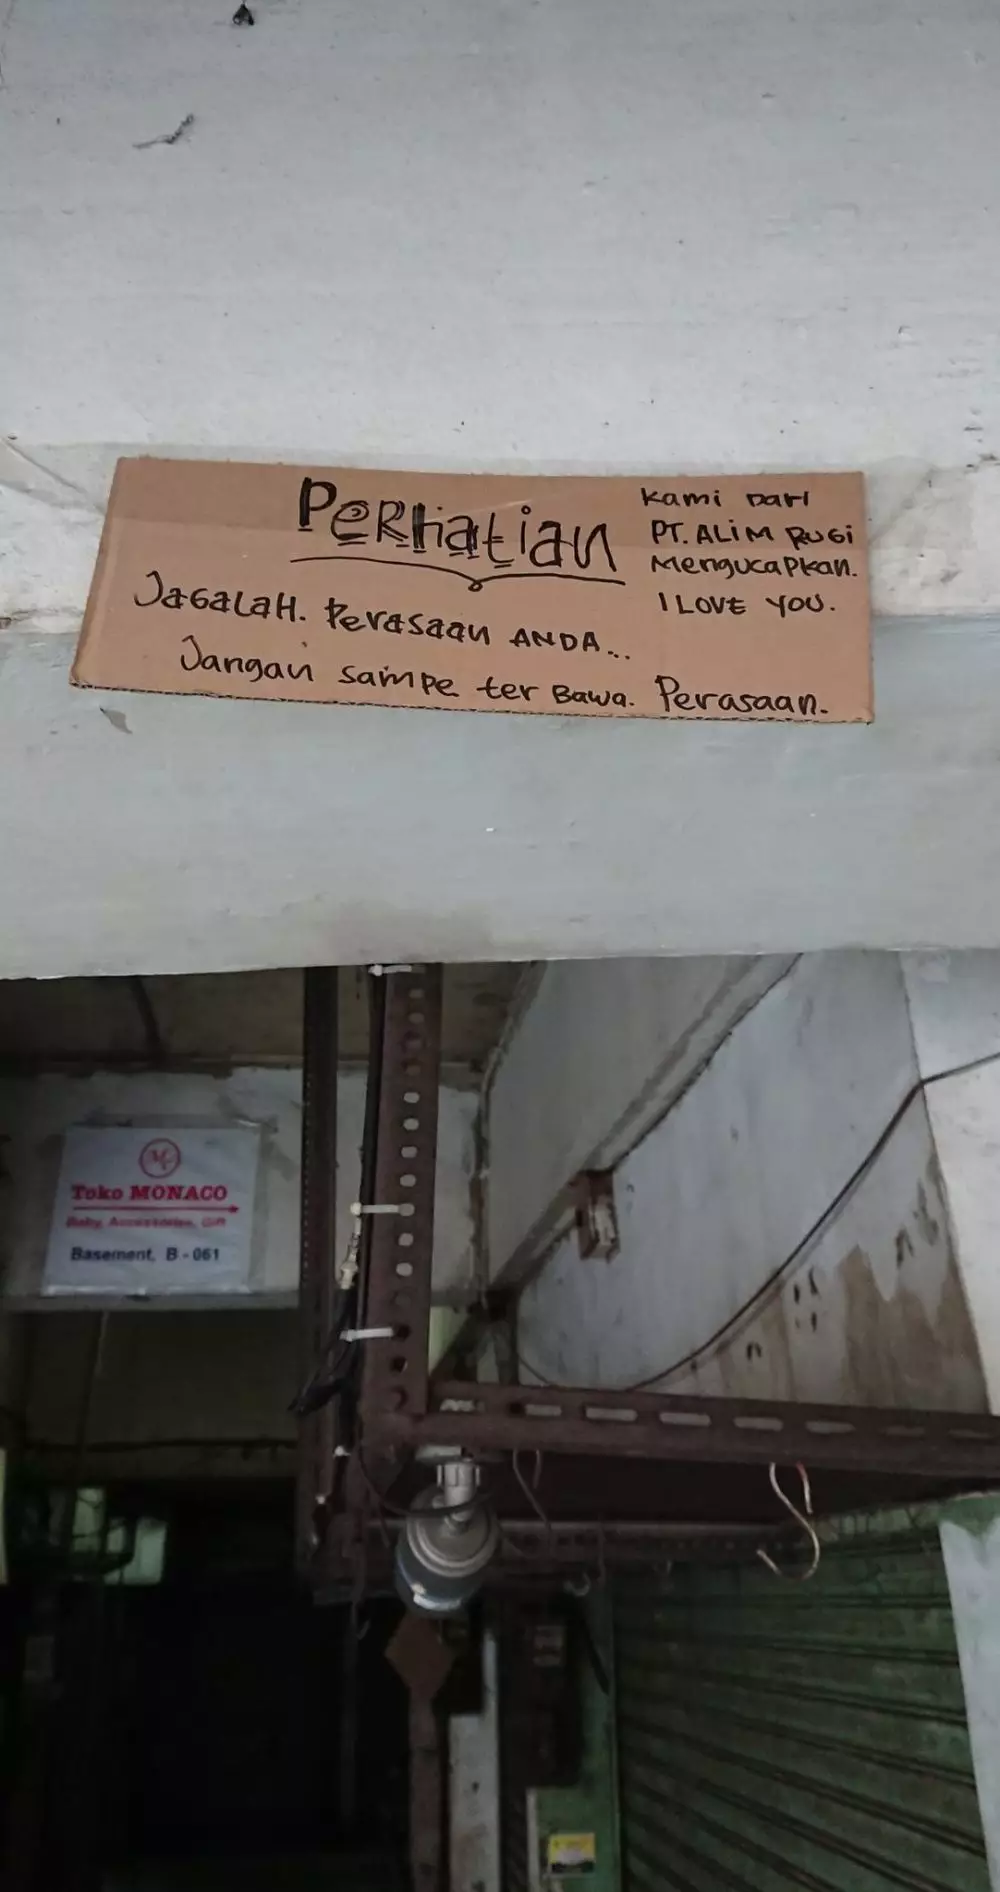 PERHatian
JaGaLaH. Perasaan ANDA...
Jangan sampe ter Bawa. Perasaan.
Kami DarI
PT. ALiM RUGi
MengucaPkan.
I LOVE YOU.
Toko MONACO
Baby, Accessories, Gift
Basement, B - 061